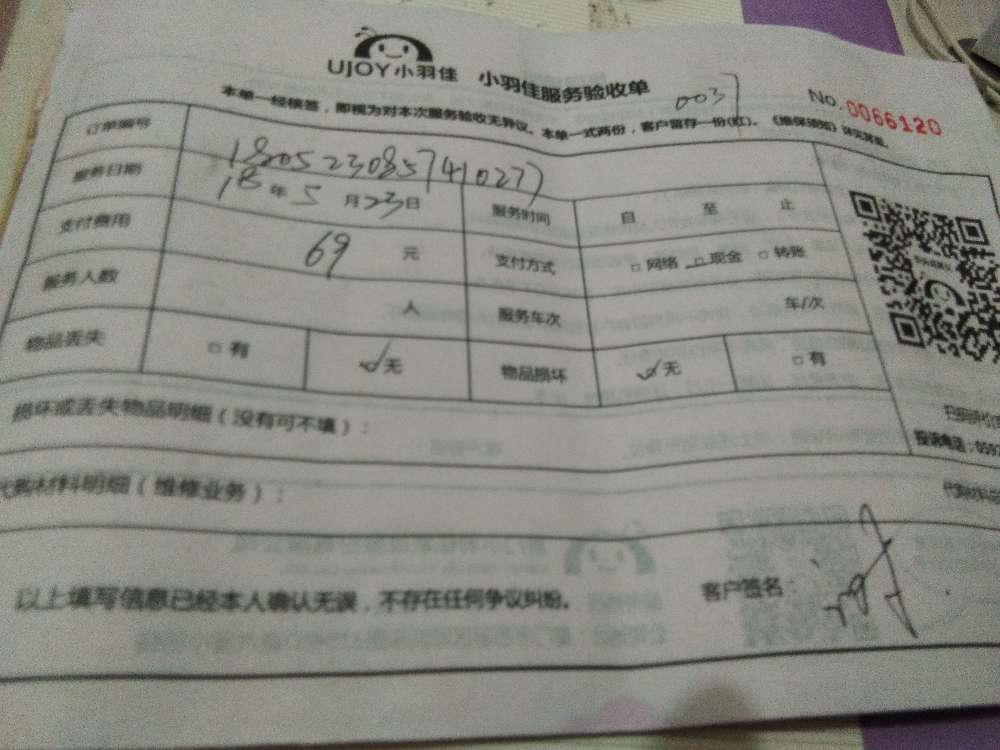 UJOY小羽佳 小羽佳服务验收单
003
No.0066120
本单一经核签，即视为对本次服务验收无异议。本单一式两份，客户留存一份(红)。《维保须知》详见背面。
订单编号 180523085741027
服务日期 18年5月23日 服务时间 自 至 止
支付费用 69 元 支付方式 □网络 □现金 □转账
服务人数 人 服务车次 车/次
物品丢失 □有 ✓无 物品损坏 ✓无 □有
损坏或丢失物品明细（没有可不填）：
投诉电话：059
代购材料明细（维修业务）：
以上填写信息已经本人确认无误，不存在任何争议纠纷。 客户签名：